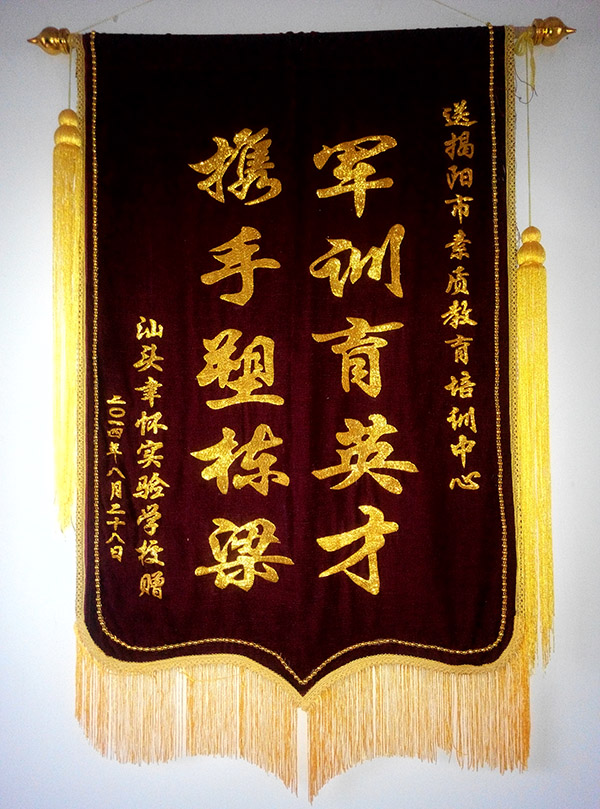 送揭阳市素质教育培训中心
军训育英才
携手塑栋梁
汕头聿怀实验学校赠
二〇一四年八月二十八日